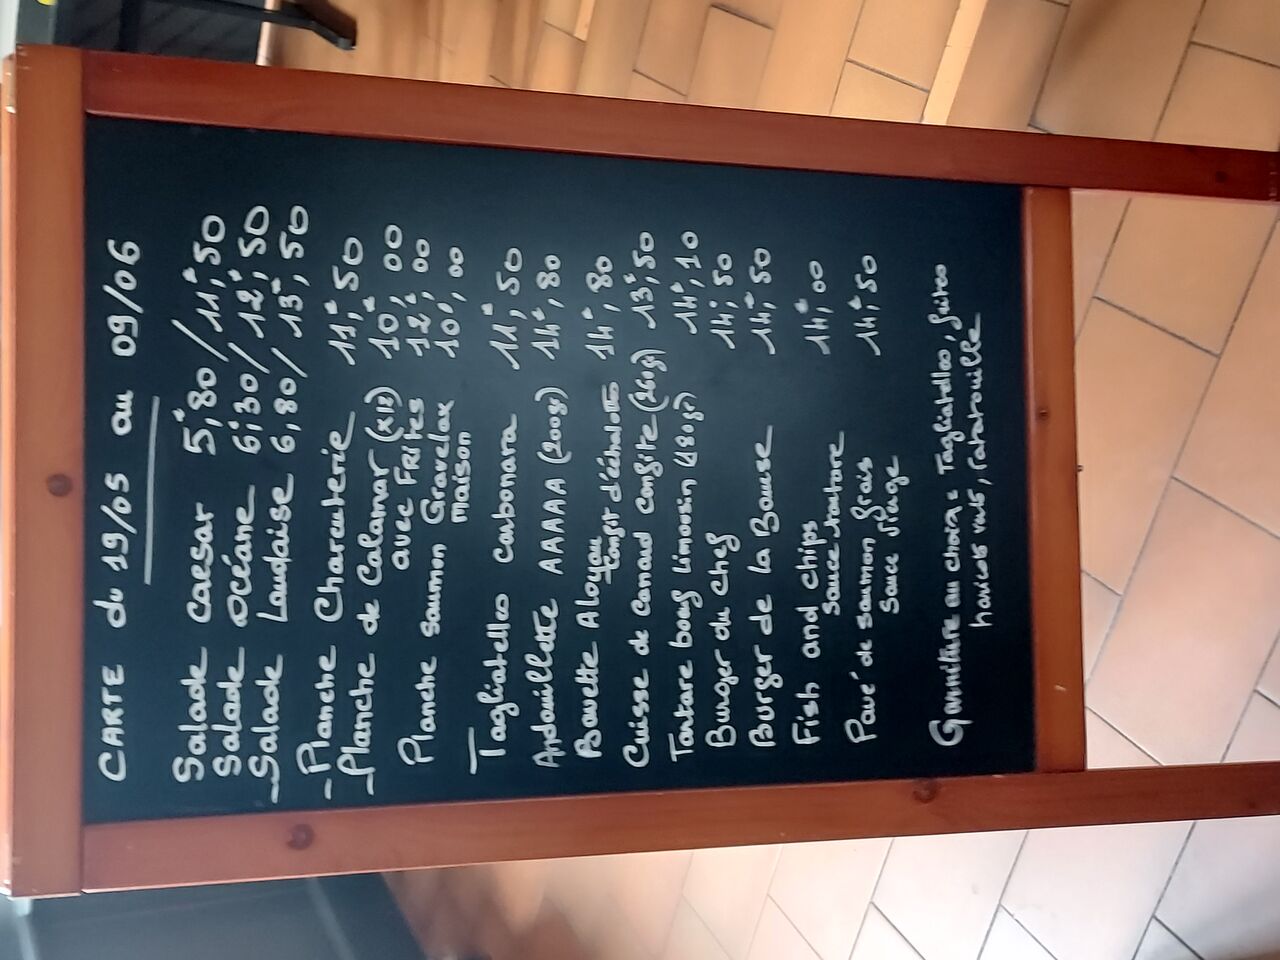 CARTE du 19/05 au 09/06
Salade caesar 5€,80 / 11€,50
Salade océane 6€,30 / 12€,50
- Salade Landaise 6,80 / 13€,50
- Planche Charcuterie 11€,50
- Planche de Calamar (x12) 10€,00
avec FRITES 12€,00
Planche saumon Gravelax 10€,00
maison
Tagliatelles carbonara 11€,50
Andouillette AAAAA (200gr) 14€,80
Bavette Aloyau 14€,80
confit d'échalotte
Cuisse de canard confite (260gr) 13€,50
Tartare boeuf Limousin (180gr) 14€,10
Burger du chef 14€,50
Burger de la Bouse 14€,50
Fish and chips 14€,00
sauce tartare
Pavé de saumon frais 14€,50
sauce vierge
Garniture au choix : Tagliatelles, frites
haricots verts, ratatouille